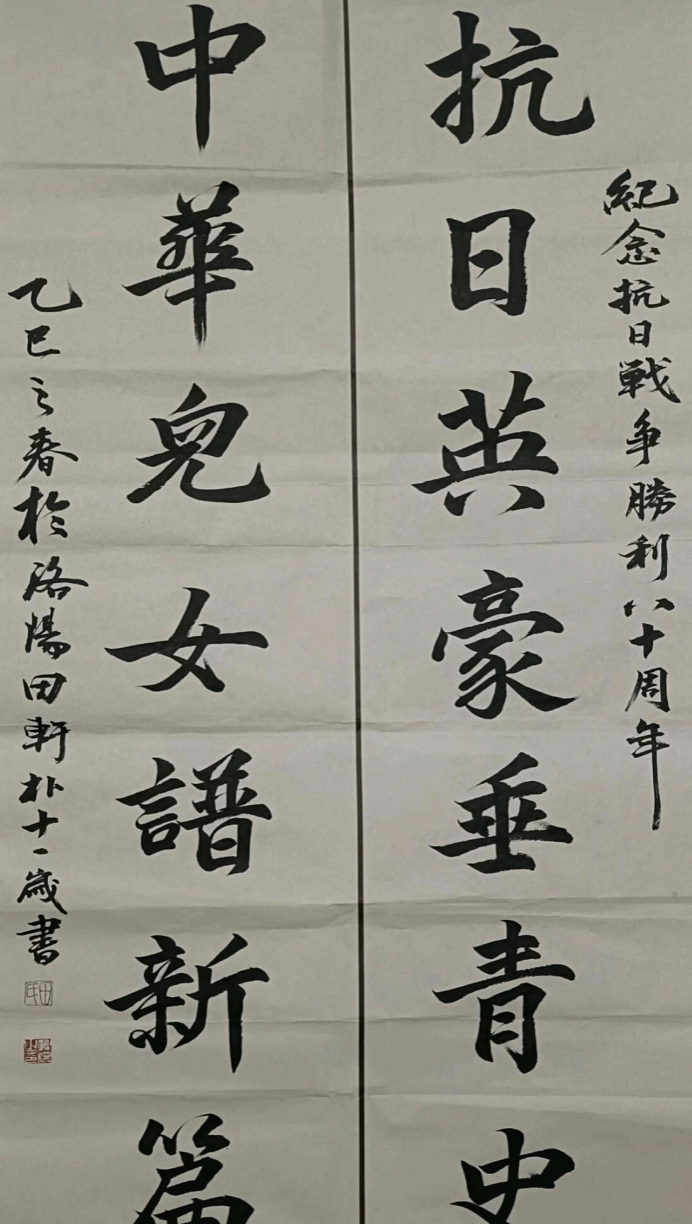 紀念抗日戦争勝利八十周年
抗日英豪垂青史
中華兒女譜新篇
乙巳之春於洛陽田軒朴十一歲書